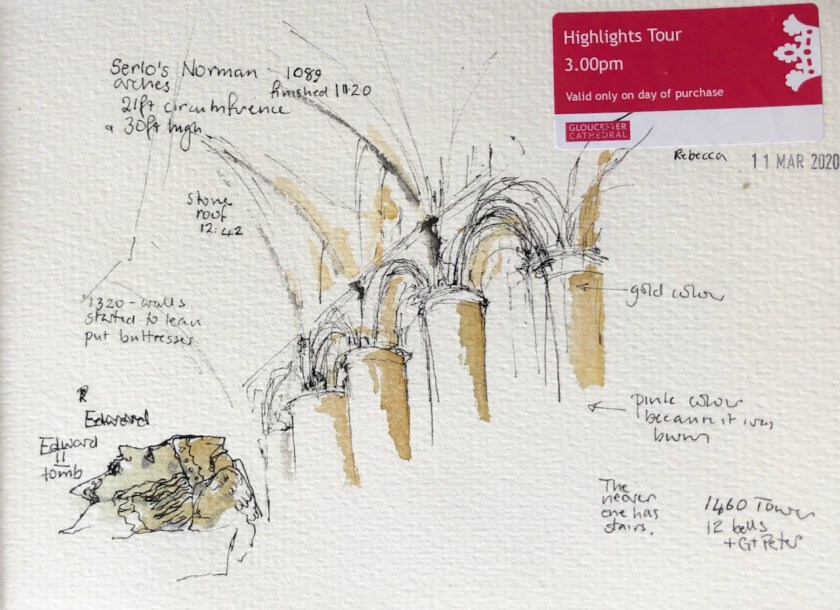 Highlights Tour
3.00pm
Valid only on day of purchase
GLOUCESTER
CATHEDRAL
Rebecca
11 MAR 2020
Serlo's Norman - 1089
arches finished 1120
21ft circumference
& 30ft high
Stone
roof
12:42
1320 - walls
started to lean
put buttresses
gold colour
pink colour
because it was
burnt
Edward
Edward
II
tomb
The
nearer
one has
stairs.
1460 Tower
12 bells
+ Gt Peter